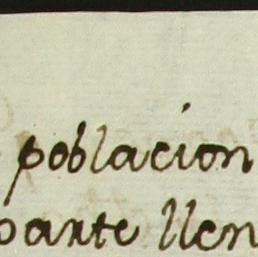 poblacion
parte llen